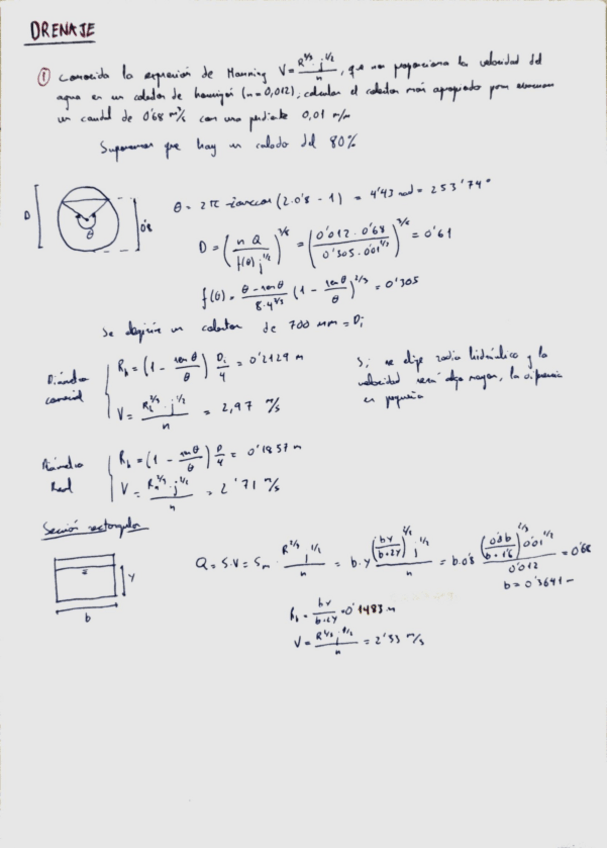 DRENAJE
① Conocida la expresión de Manning V = R^2/3 · j^1/2 / n, que nos proporciona la velocidad del
agua en un colector de hormigón (n=0,012), calcular el colector más apropiado para
un caudal de 0'68 m³/s con una pendiente 0,01 m/m
Suponemos que hay un calado del 80%
D
θ
θ = 2π - 2arccos (2·0'8 - 1) = 4'43 rad = 253'74°
D = (n Q / f(θ) j^1/2)^3/8 = (0'012 · 0'68 / 0'305 · 0'01^1/2)^3/8 = 0'61
f(θ) = θ - senθ / 8·4^2/3 (1 - senθ/θ)^2/3 = 0'305
Se elegiría un colector de 700 mm = Di
Diámetro
comercial
Rh = (1 - senθ/θ) Di/4 = 0'2129 m
V = Rh^2/3 · j^1/2 / n = 2,97 m/s
Si se elige radio hidráulico y la
velocidad será algo mayor, la diferencia
es pequeña
Diámetro
Real
Rh = (1 - senθ/θ) D/4 = 0'1857 m
V = Rh^2/3 · j^1/2 / n = 2'71 m/s
Sección rectangular
Y
b
Q = S·V = Sm · R^2/3 j^1/2 / n = b·y (by / b+2y)^2/3 j^1/2 / n = b·0'8 (0'8b / b+1'6)^2/3 0'01^1/2 / 0'012 = 0'68
b = 0'3641 m
Rh = by / b+2y = 0'1483 m
V = R^2/3 j^1/2 / n = 2'33 m/s